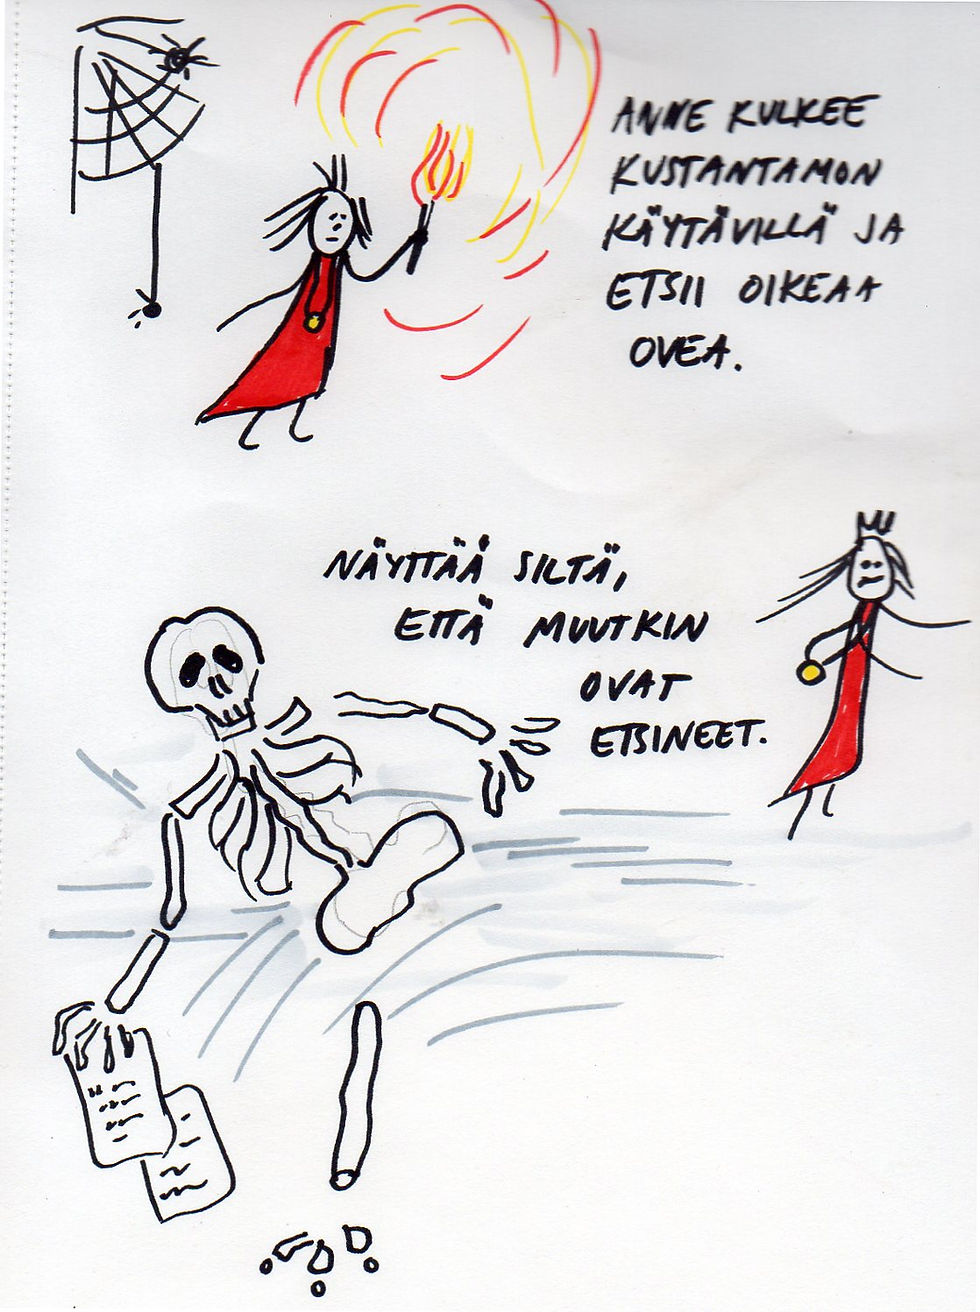 ANNE KULKEE
KUSTANTAMON
KÄYTÄVILLÄ JA
ETSII OIKEAA
OVEA.
NÄYTTÄÄ SILTÄ,
ETTÄ MUUTKIN
OVAT
ETSINEET.